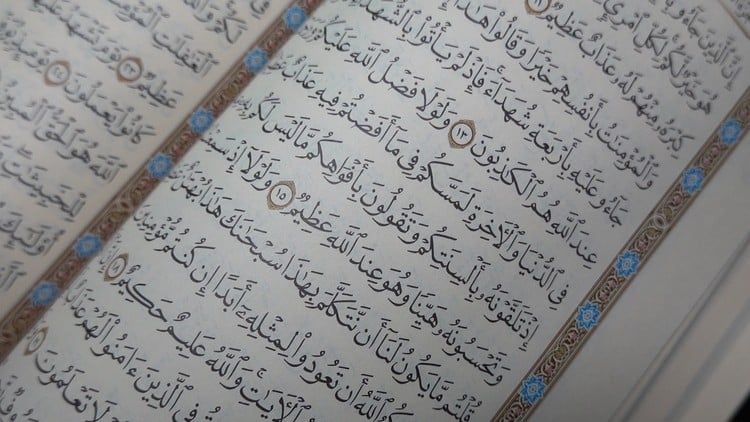 إِنَّ ٱلَّذِينَ جَآءُو
هُوَ خَيْرٌ لَّكُمْ لِكُلِّ ٱمْرِئٍ
كِبْرَهُۥ مِنْهُمْ لَهُۥ عَذَابٌ عَظِيمٌ ١١
وَٱلْمُؤْمِنَـٰتُ بِأَنفُسِهِمْ خَيْرًا وَقَالُوا۟ هَـٰذَآ
جَآءُو عَلَيْهِ بِأَرْبَعَةِ شُهَدَآءَ فَإِذْ لَمْ يَأْتُوا۟ بِٱلشُّهَدَآءِ
عِندَ ٱللَّهِ هُمُ ٱلْكَـٰذِبُونَ ١٣ وَلَوْلَا فَضْلُ ٱللَّهِ عَلَيْكُمْ
فِى ٱلدُّنْيَا وَٱلْـَٔاخِرَةِ لَمَسَّكُمْ فِى مَآ أَفَضْتُمْ فِيهِ عَذَابٌ
إِذْ تَلَقَّوْنَهُۥ بِأَلْسِنَتِكُمْ وَتَقُولُونَ بِأَفْوَاهِكُم مَّا لَيْسَ لَكُم
وَتَحْسَبُونَهُۥ هَيِّنًا وَهُوَ عِندَ ٱللَّهِ عَظِيمٌ ١٥ وَلَوْلَآ إِذْ
قُلْتُم مَّا يَكُونُ لَنَآ أَن نَّتَكَلَّمَ بِهَـٰذَا سُبْحَـٰنَكَ هَـٰذَا بُهْتَـٰنٌ
ٱللَّهُ أَن تَعُودُوا۟ لِمِثْلِهِۦٓ أَبَدًا إِن كُنتُم مُّؤْمِنِينَ
ٱلْـَٔايَـٰتِ وَٱللَّهُ عَلِيمٌ حَكِيمٌ ١٨
فِى ٱلَّذِينَ ءَامَنُوا۟ لَهُمْ عَذَابٌ
لَا تَعْلَمُونَ ١٩
لَكُمْ وَٱللَّهُ
ٱلْغَـٰفِلَـٰتِ
عَظِيمٌ ٢٣ يَوْمَ تَشْهَدُ
كَانُوا۟ يَعْمَلُونَ ٢٤
ٱللَّهَ هُوَ ٱلْحَقُّ ٱلْمُبِينُ
أُو۟لَـٰٓئِكَ